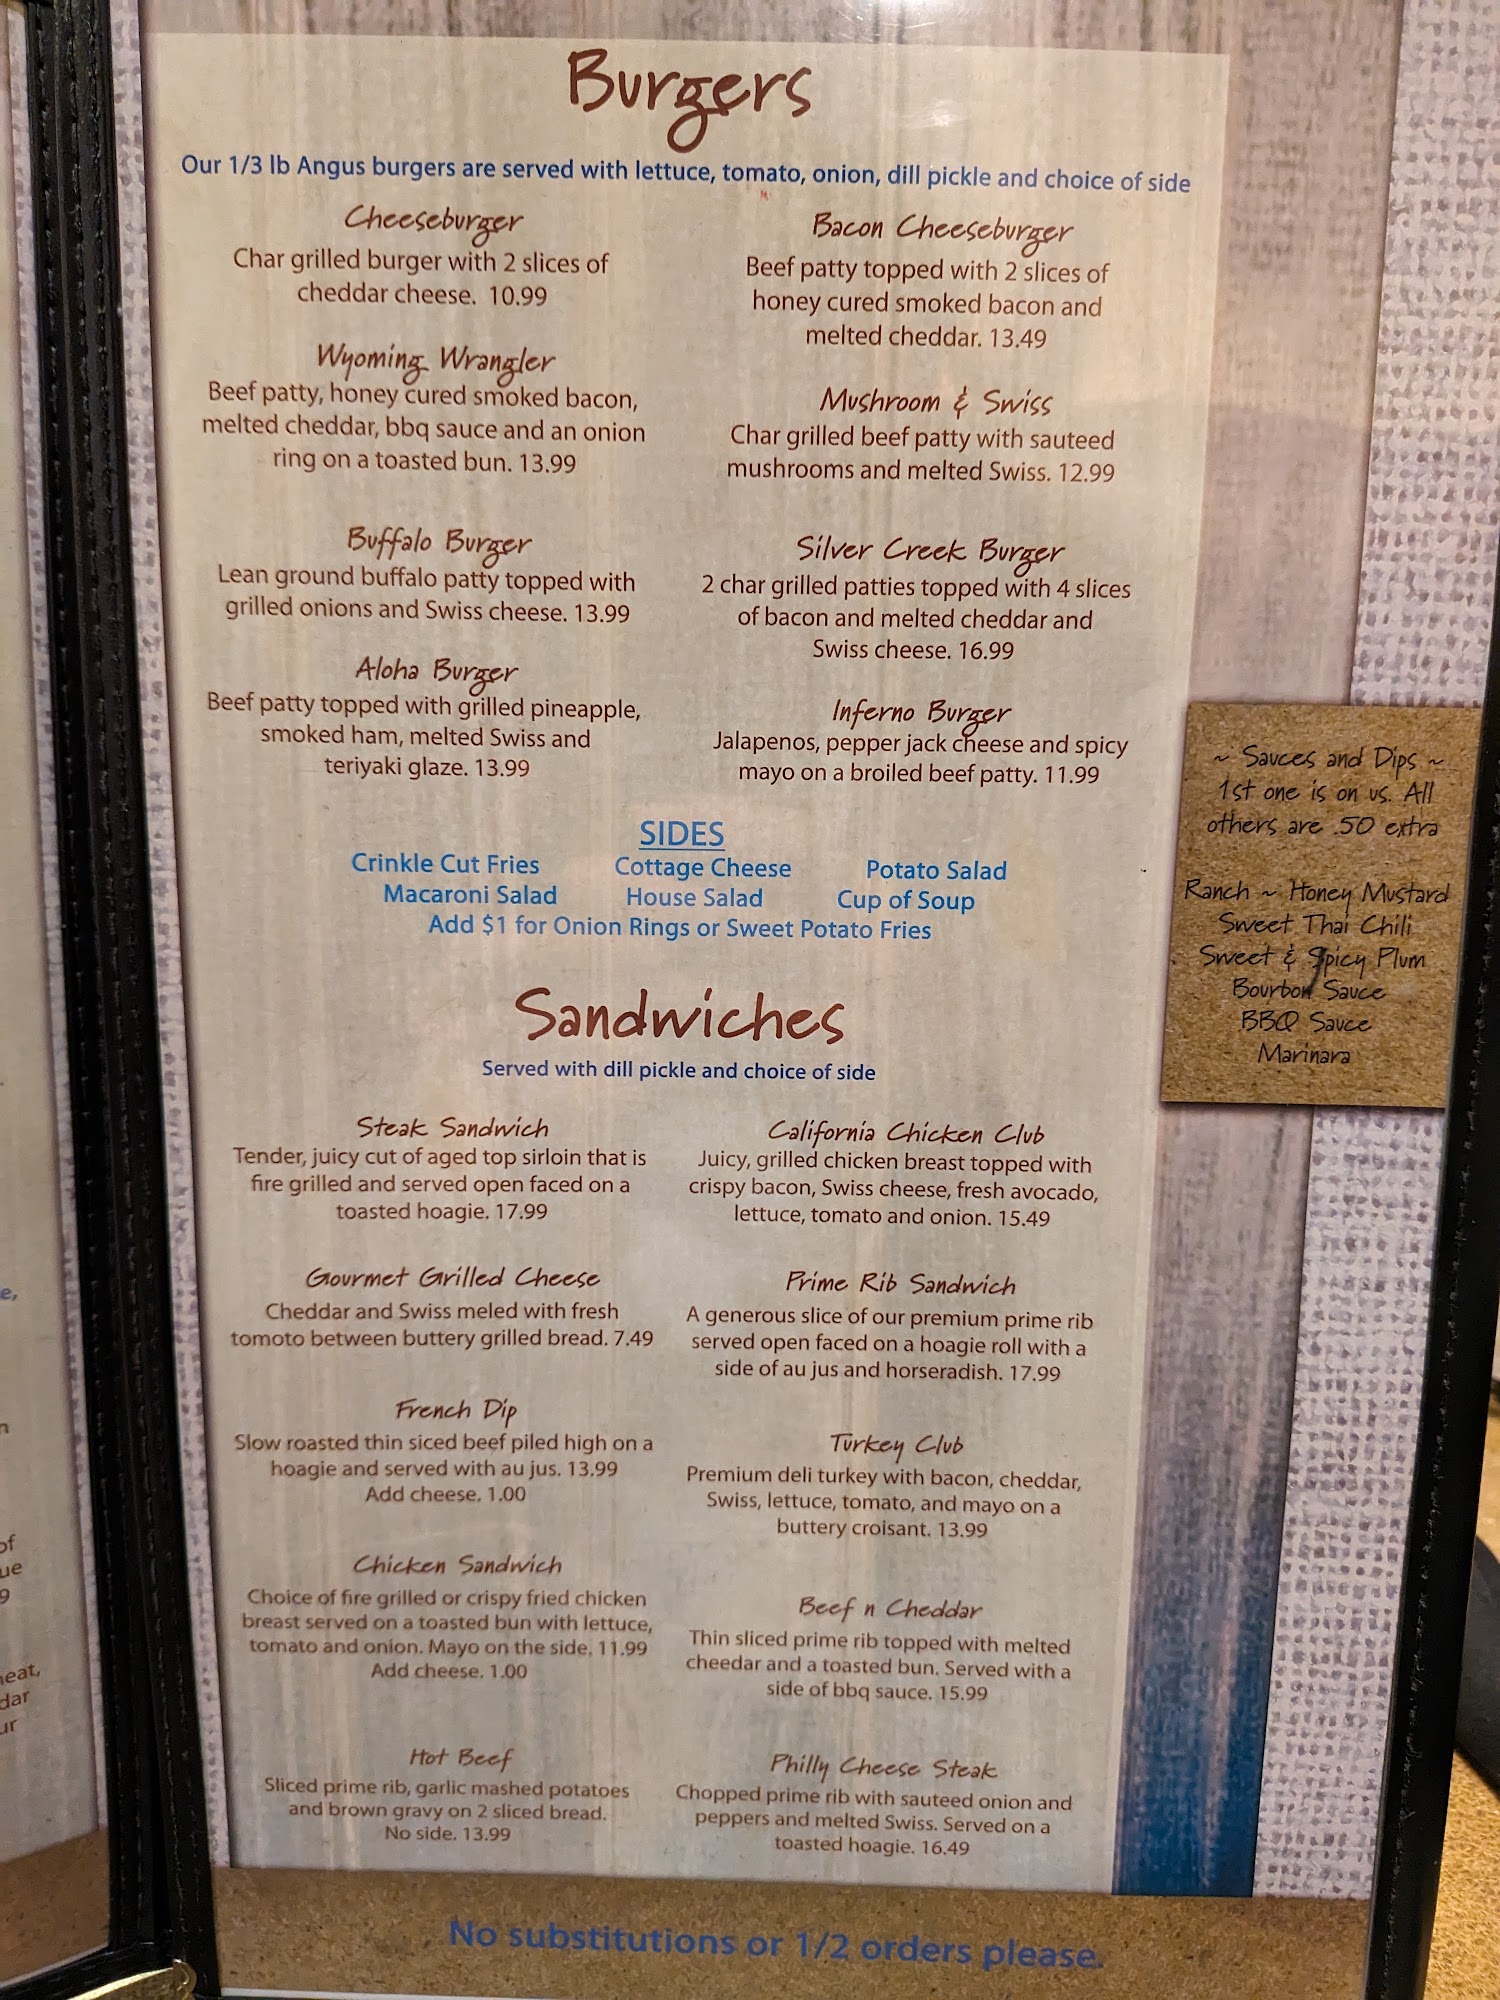 Burgers
Our 1/3 lb Angus burgers are served with lettuce, tomato, onion, dill pickle and choice of side
Cheeseburger
Char grilled burger with 2 slices of
cheddar cheese. 10.99
Wyoming Wrangler
Beef patty, honey cured smoked bacon,
melted cheddar, bbq sauce and an onion
ring on a toasted bun. 13.99
Buffalo Burger
Lean ground buffalo patty topped with
grilled onions and Swiss cheese. 13.99
Aloha Burger
Beef patty topped with grilled pineapple,
smoked ham, melted Swiss and
teriyaki glaze. 13.99
Bacon Cheeseburger
Beef patty topped with 2 slices of
honey cured smoked bacon and
melted cheddar. 13.49
Mushroom & Swiss
Char grilled beef patty with sauteed
mushrooms and melted Swiss. 12.99
Silver Creek Burger
2 char grilled patties topped with 4 slices
of bacon and melted cheddar and
Swiss cheese. 16.99
Inferno Burger
Jalapenos, pepper jack cheese and spicy
mayo on a broiled beef patty. 11.99
SIDES
Crinkle Cut Fries Cottage Cheese Potato Salad
Macaroni Salad House Salad Cup of Soup
Add $1 for Onion Rings or Sweet Potato Fries
~ Sauces and Dips ~
1st one is on us. All
others are .50 extra
Ranch ~ Honey Mustard
Sweet Thai Chili
Sweet & Spicy Plum
Bourbon Sauce
BBQ Sauce
Marinara
Sandwiches
Served with dill pickle and choice of side
Steak Sandwich
Tender, juicy cut of aged top sirloin that is
fire grilled and served open faced on a
toasted hoagie. 17.99
Gourmet Grilled Cheese
Cheddar and Swiss meled with fresh
tomoto between buttery grilled bread. 7.49
French Dip
Slow roasted thin siced beef piled high on a
hoagie and served with au jus. 13.99
Add cheese. 1.00
Chicken Sandwich
Choice of fire grilled or crispy fried chicken
breast served on a toasted bun with lettuce,
tomato and onion. Mayo on the side. 11.99
Add cheese. 1.00
Hot Beef
Sliced prime rib, garlic mashed potatoes
and brown gravy on 2 sliced bread.
No side. 13.99
California Chicken Club
Juicy, grilled chicken breast topped with
crispy bacon, Swiss cheese, fresh avocado,
lettuce, tomato and onion. 15.49
Prime Rib Sandwich
A generous slice of our premium prime rib
served open faced on a hoagie roll with a
side of au jus and horseradish. 17.99
Turkey Club
Premium deli turkey with bacon, cheddar,
Swiss, lettuce, tomato, and mayo on a
buttery croisant. 13.99
Beef n Cheddar
Thin sliced prime rib topped with melted
cheedar and a toasted bun. Served with a
side of bbq sauce. 15.99
Philly Cheese Steak
Chopped prime rib with sauteed onion and
peppers and melted Swiss. Served on a
toasted hoagie. 16.49
No substitutions or 1/2 orders please.